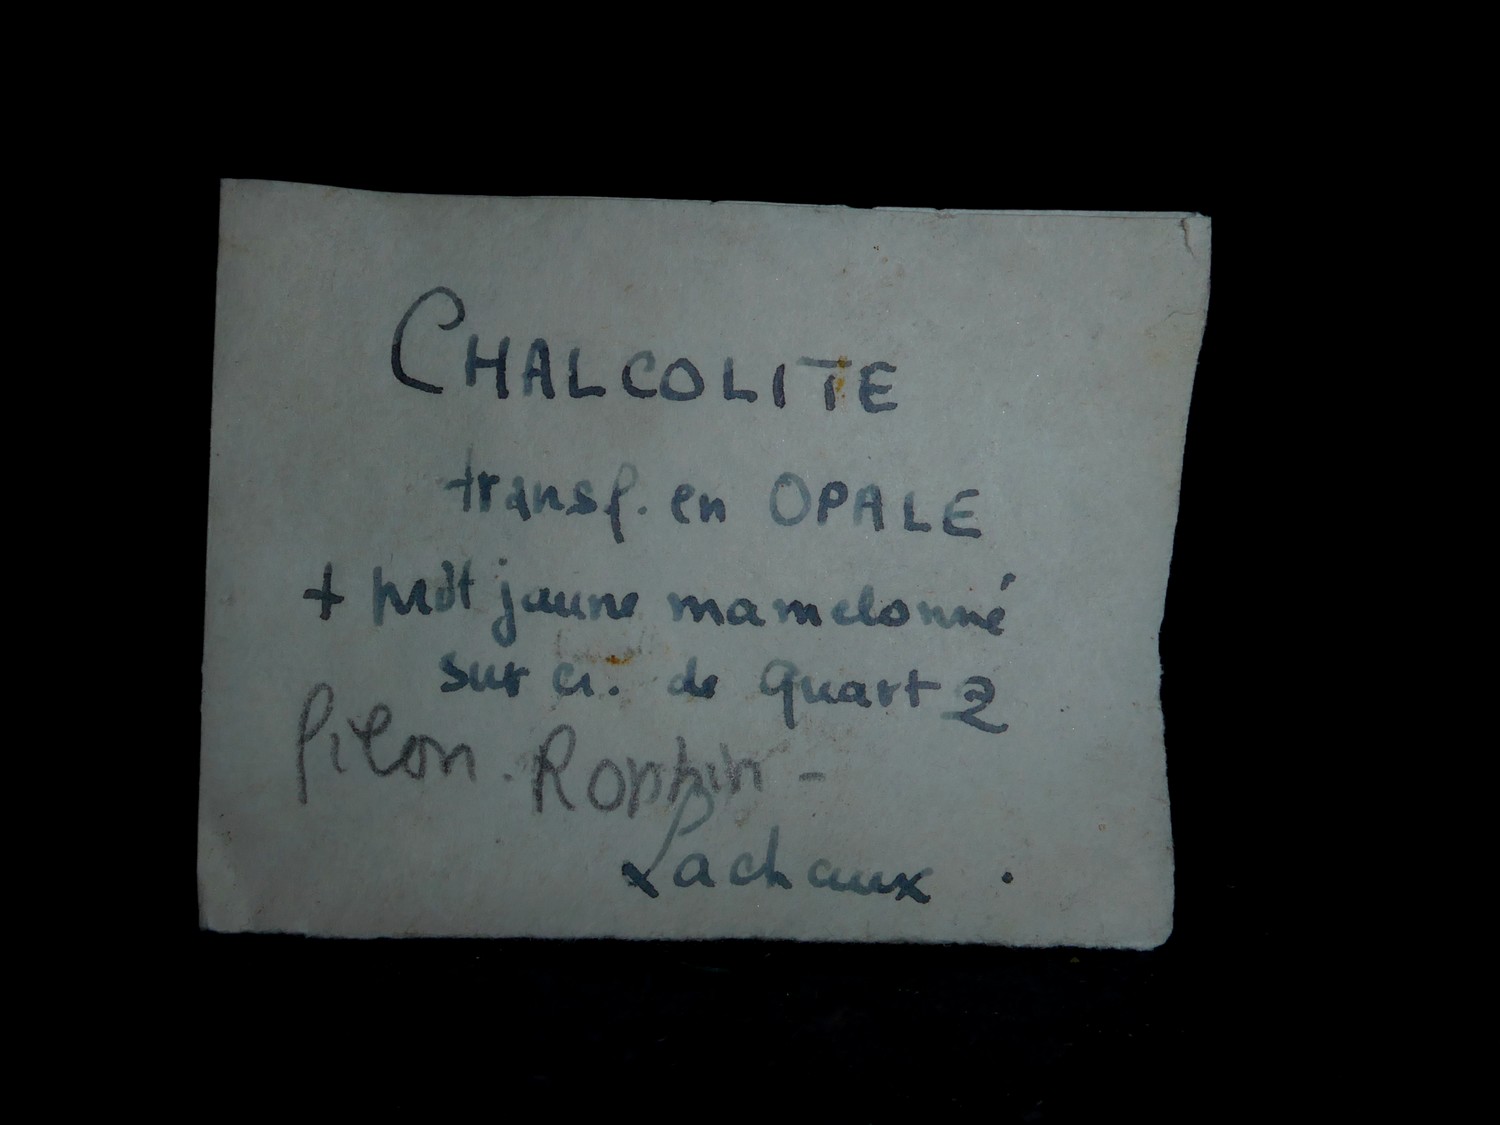 CHALCOLITE
transf. en OPALE
+ jaune mamelonné
sur cr. de Quartz
filon.
Lachaux .